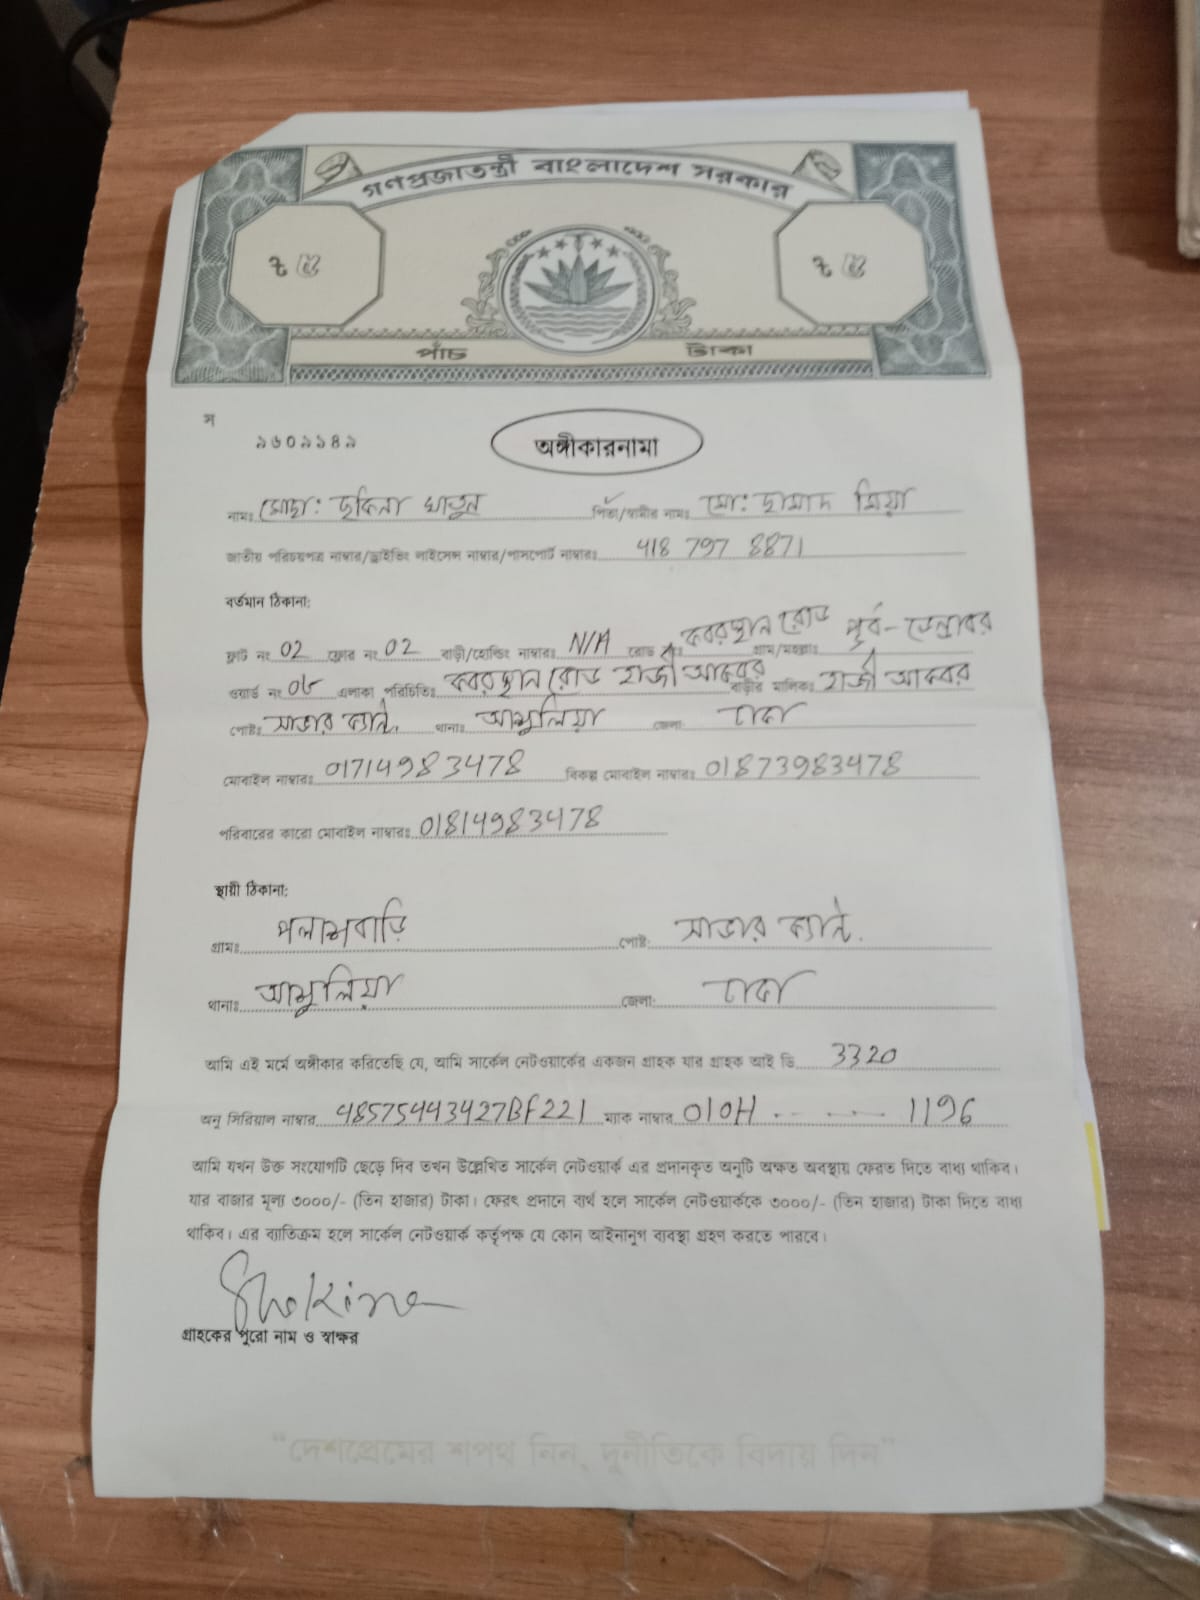 গণপ্রজাতন্ত্রী বাংলাদেশ সরকার
৳ ৫ ৳ ৫
পাঁচ টাকা
স
৯৬০৯৯৪৯
অঙ্গীকারনামা
নামঃ মোছা: ছকিনা খাতুন পিতা/স্বামীর নামঃ মো: ছামাদ মিয়া
জাতীয় পরিচয়পত্র নাম্বার/ড্রাইভিং লাইসেন্স নাম্বার/পাসপোর্ট নাম্বারঃ 418 797 8871
বর্তমান ঠিকানা:
ফ্লাট নং 02 ফ্লোর নং 02 বাড়ী/হোল্ডিং নাম্বারঃ N/A রোড নং কবরস্থান রোড গ্রাম/মহল্লাঃ পূর্ব-ডেন্ডাবর
ওয়ার্ড নং 06 এলাকা পরিচিতিঃ কবরস্থান রোড হাজী আকবর বাড়ীর মালিকঃ হাজী আকবর
পোষ্টঃ সাভার ক্যান্ট. থানাঃ আশুলিয়া জেলা: ঢাকা
মোবাইল নাম্বারঃ 01714983478 বিকল্প মোবাইল নাম্বারঃ 01873983478
পরিবারের কারো মোবাইল নাম্বারঃ 01814983478
স্থায়ী ঠিকানা:
গ্রামঃ পলাশবাড়ি পোষ্ট: সাভার ক্যান্ট.
থানাঃ আশুলিয়া জেলা: ঢাকা
আমি এই মর্মে অঙ্গীকার করিতেছি যে, আমি সার্কেল নেটওয়ার্কের একজন গ্রাহক যার গ্রাহক আই ডি 3320
অনু সিরিয়াল নাম্বার 48575443427BF221 ম্যাক নাম্বার 010H -- -- 1196
আমি যখন উক্ত সংযোগটি ছেড়ে দিব তখন উল্লেখিত সার্কেল নেটওয়ার্ক এর প্রদানকৃত অনুটি অক্ষত অবস্থায় ফেরত দিতে বাধ্য থাকিব।
যার বাজার মূল্য ৩০০০/- (তিন হাজার) টাকা। ফেরৎ প্রদানে ব্যর্থ হলে সার্কেল নেটওয়ার্ককে ৩০০০/- (তিন হাজার) টাকা দিতে বাধ্য
থাকিব। এর ব্যাতিক্রম হলে সার্কেল নেটওয়ার্ক কর্তৃপক্ষ যে কোন আইনানুগ ব্যবস্থা গ্রহণ করতে পারবে।
Shokina
গ্রাহকের পুরো নাম ও স্বাক্ষর
"দেশপ্রেমের শপথ নিন, দুর্নীতিকে বিদায় দিন"